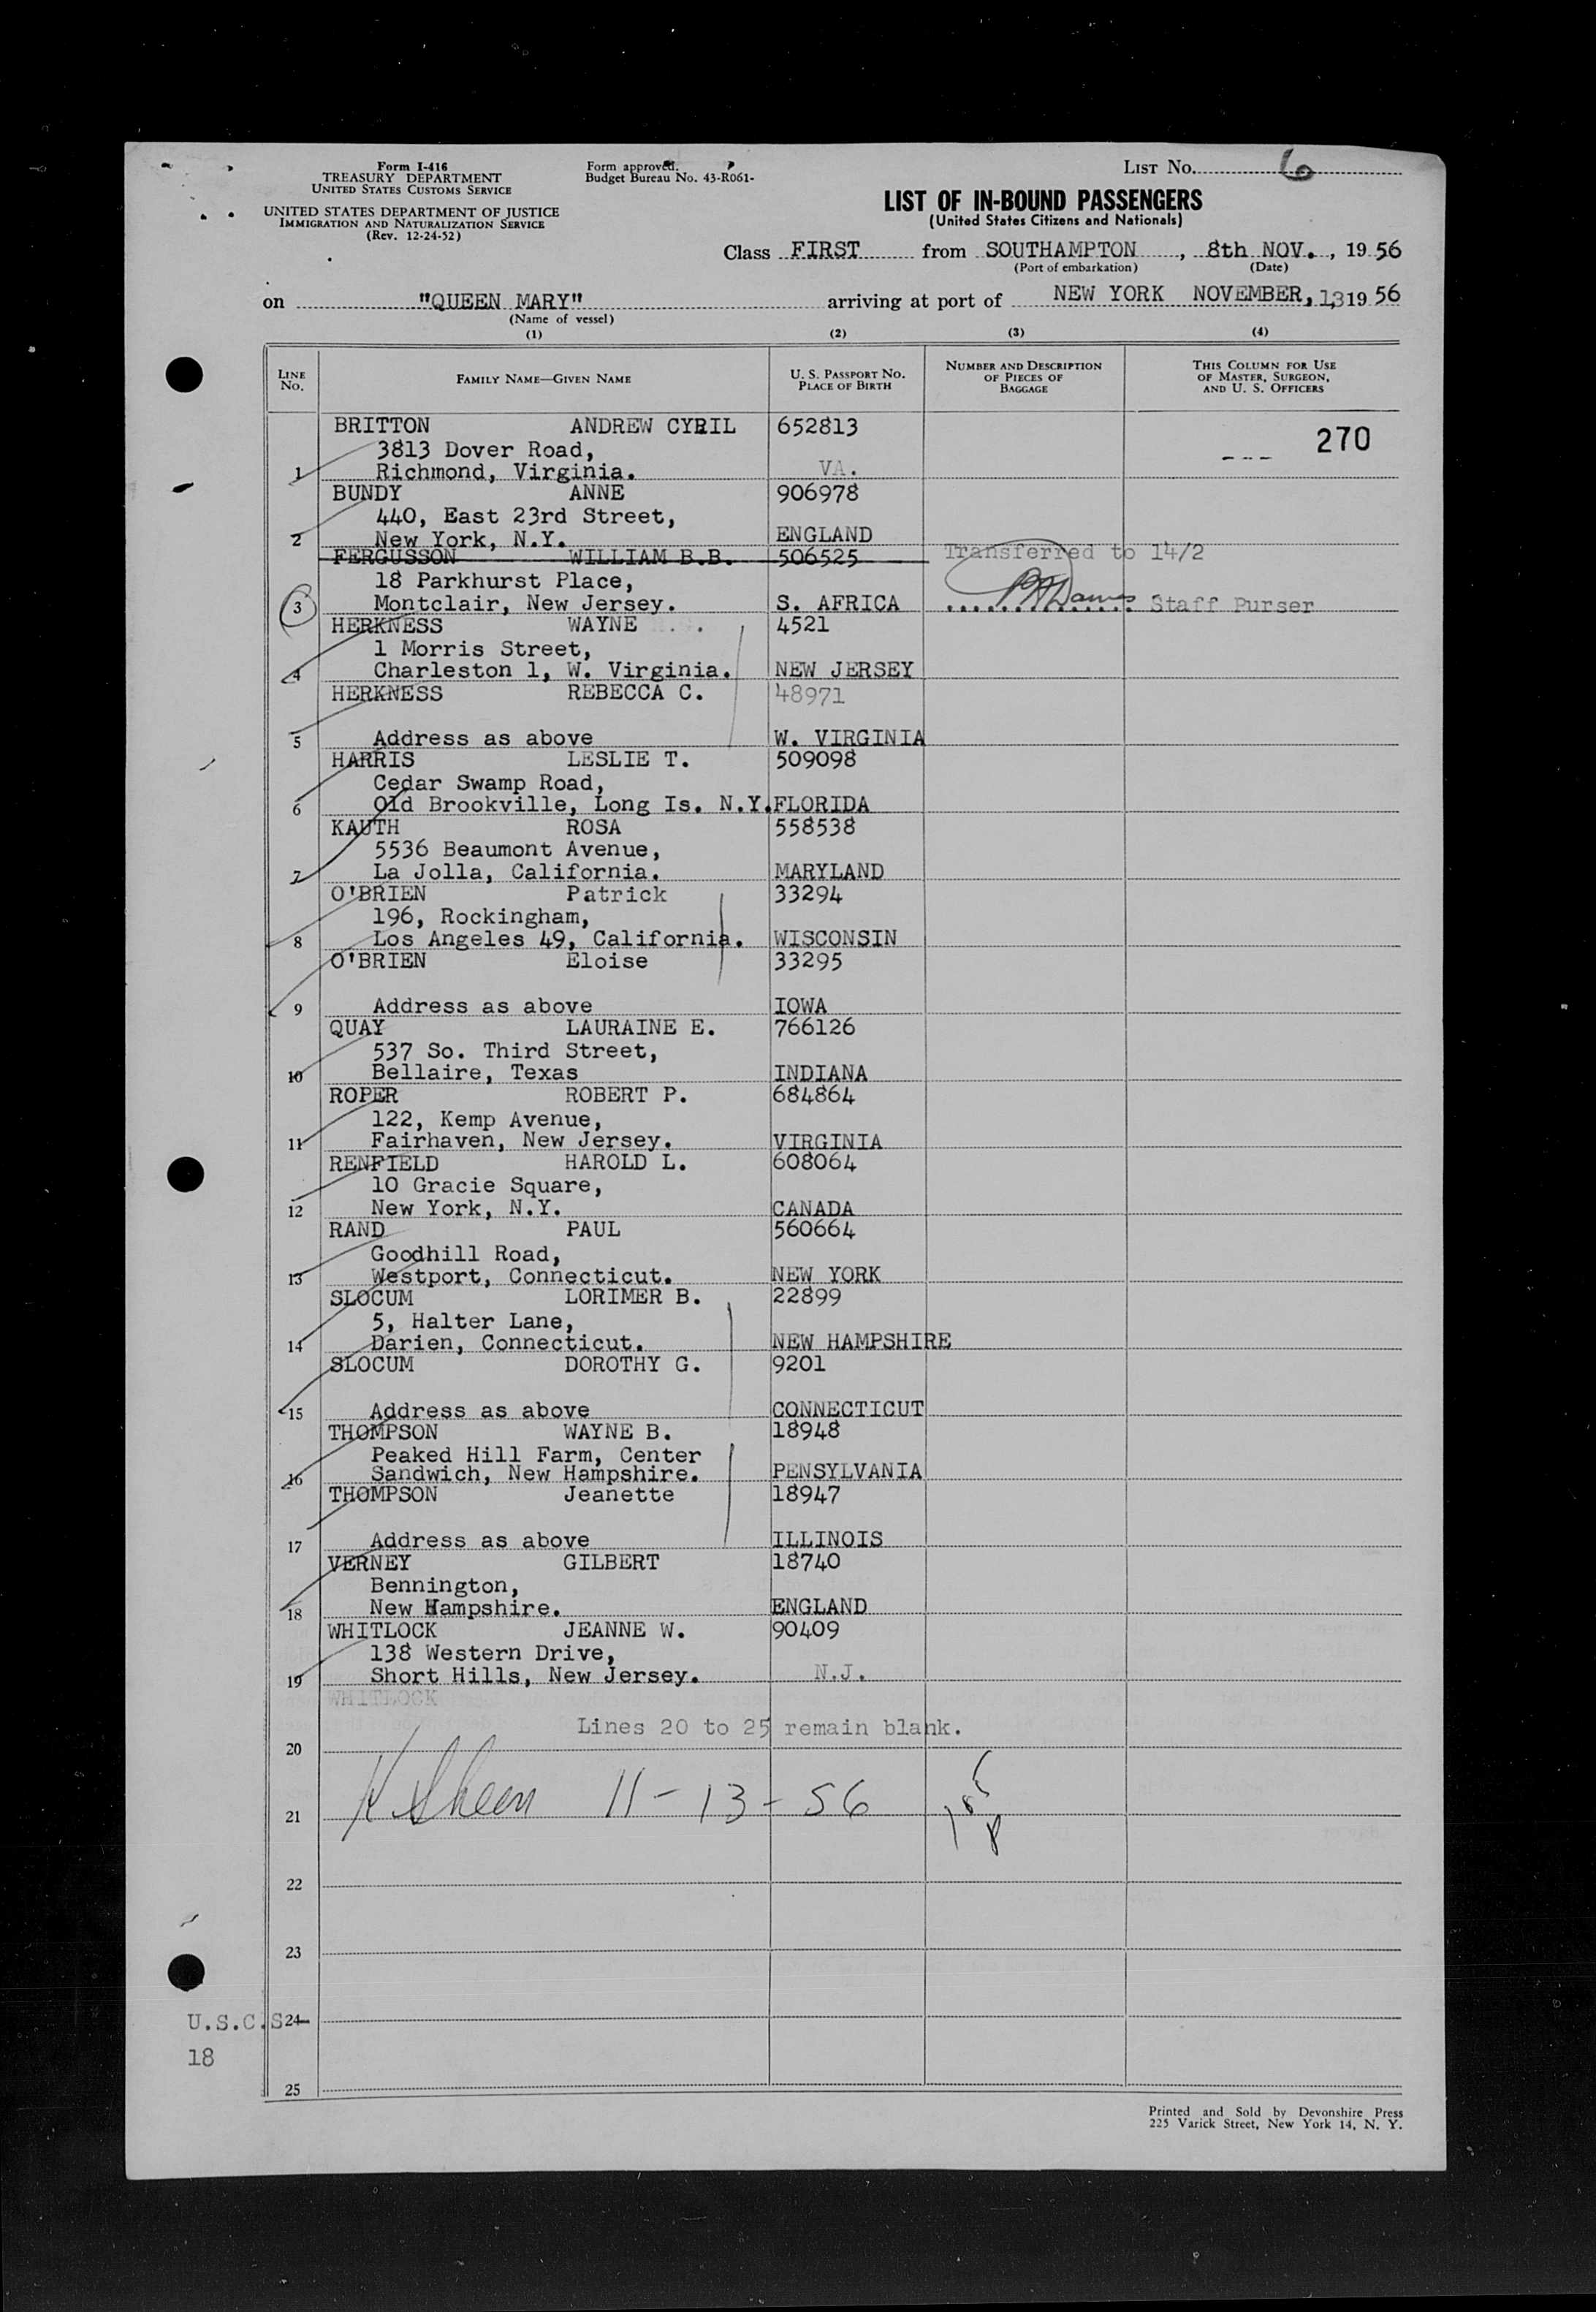 Form I-416
TREASURY DEPARTMENT
UNITED STATES CUSTOMS SERVICE
UNITED STATES DEPARTMENT OF JUSTICE
IMMIGRATION AND NATURALIZATION SERVICE
(Rev. 12-24-52)
Form approved.
Budget Bureau No. 43-R061-
LIST No. 6
LIST OF IN-BOUND PASSENGERS
(United States Citizens and Nationals)
Class FIRST from SOUTHAMPTON, 8th NOV., 1956
(Port of embarkation) (Date)
on "QUEEN MARY" arriving at port of NEW YORK NOVEMBER, 13 1956
(Name of vessel)
(1) (2) (3) (4)
LINE No. FAMILY NAME—GIVEN NAME U. S. PASSPORT No. PLACE OF BIRTH NUMBER AND DESCRIPTION OF PIECES OF BAGGAGE THIS COLUMN FOR USE OF MASTER, SURGEON, AND U. S. OFFICERS
BRITTON ANDREW CYRIL 652813
3813 Dover Road, --- 270
1 Richmond, Virginia. VA.
BUNDY ANNE 906978
440, East 23rd Street,
2 New York, N.Y. ENGLAND
FERGUSSON WILLIAM B.B. 506525 Transferred to 14/2
18 Parkhurst Place,
3 Montclair, New Jersey. S. AFRICA Staff Purser
HERKNESS WAYNE 4521
1 Morris Street,
4 Charleston 1, W. Virginia. NEW JERSEY
HERKNESS REBECCA C. 48971
5 Address as above W. VIRGINIA
HARRIS LESLIE T. 509098
Cedar Swamp Road,
6 Old Brookville, Long Is. N.Y. FLORIDA
KAUTH ROSA 558538
5536 Beaumont Avenue,
7 La Jolla, California. MARYLAND
O'BRIEN Patrick 33294
196, Rockingham,
8 Los Angeles 49, California. WISCONSIN
O'BRIEN Eloise 33295
9 Address as above IOWA
QUAY LAURAINE E. 766126
537 So. Third Street,
10 Bellaire, Texas INDIANA
ROPER ROBERT P. 684864
122, Kemp Avenue,
11 Fairhaven, New Jersey. VIRGINIA
RENFIELD HAROLD L. 608064
10 Gracie Square,
12 New York, N.Y. CANADA
RAND PAUL 560664
Goodhill Road,
13 Westport, Connecticut. NEW YORK
SLOCUM LORIMER B. 22899
5, Halter Lane,
14 Darien, Connecticut. NEW HAMPSHIRE
SLOCUM DOROTHY G. 9201
15 Address as above CONNECTICUT
THOMPSON WAYNE B. 18948
Peaked Hill Farm, Center
16 Sandwich, New Hampshire. PENSYLVANIA
THOMPSON Jeanette 18947
17 Address as above ILLINOIS
VERNEY GILBERT 18740
Bennington,
18 New Hampshire. ENGLAND
WHITLOCK JEANNE W. 90409
138 Western Drive,
19 Short Hills, New Jersey. N.J.
WHITLOCK
Lines 20 to 25 remain blank.
20
21 11-13-56
22
23
U.S.C.S- 24
18
25
Printed and Sold by Devonshire Press
225 Varick Street, New York 14, N. Y.